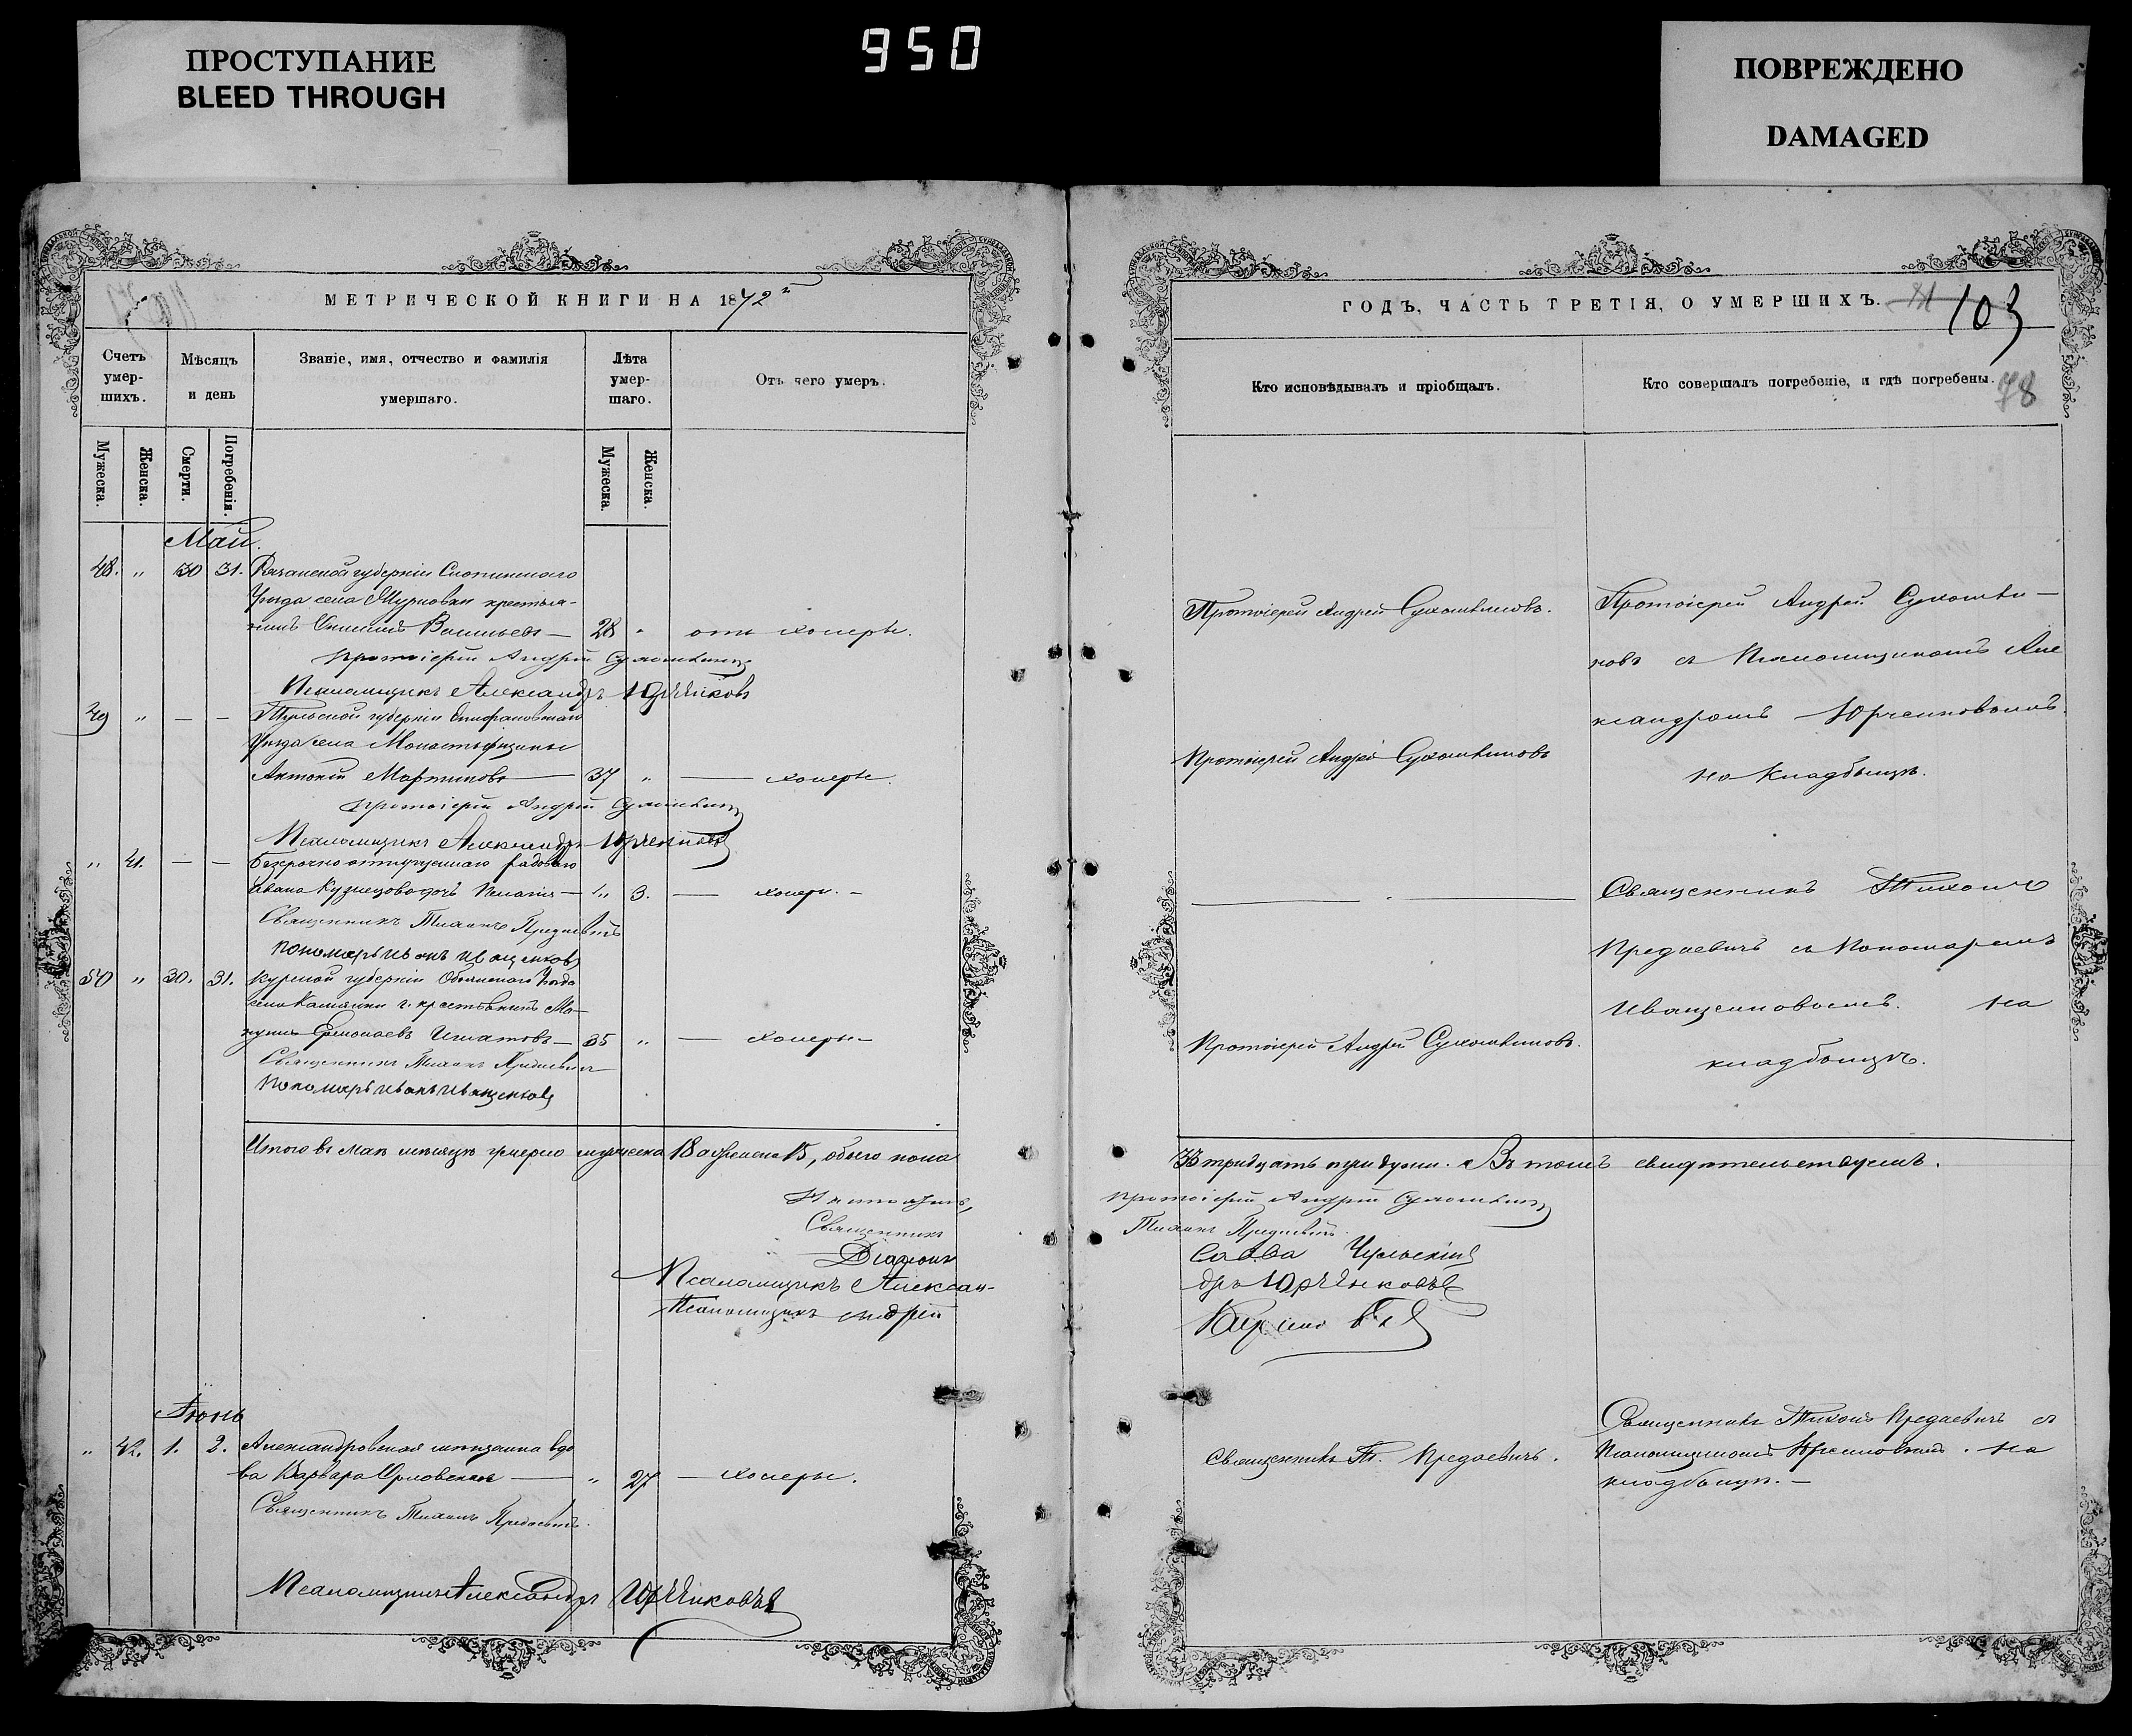 ПРОСТУПАНИЕ
BLEED THROUGH
950
ПОВРЕЖДЕНО
DAMAGED
МЕТРИЧЕСКОЙ КНИГИ НА 1872
Счетъ умер-шихъ.
Мѣсяцъ и день
Званіе, имя, отчество и фамилія умершаго.
Лѣта умер-шаго.
Отъ чего умеръ.
Мужеска.
Женска.
Смерти.
Погребенія.
Мужеска
Женска.
Май.
48. " 30 31. Рязанской губерніи Скопинскаго
Уѣзда села Мурловки крестья-
нинъ Васильевъ — 28 " отъ холеры.
Протоіерей Андрей Сухомлиновъ
Псаломщикъ Александръ Юрченковъ
49 " — — Тульской губерніи Епифановскаго
Уѣзда села Монастырщины
Антоній Мартиновъ — 37 " — холеры.
Протоіерей Андрей Сухомлиновъ
Псаломщикъ Александръ Юрченковъ
" 41. — — Безсрочно отпускнаго рядоваго
Ивана Кузнецова дочь Пелагія — " 3. — холеры. —
Священникъ Тихонъ Предаевичъ
Пономарь Иванъ Иващенковъ
50 " 30. 31. Курской губерніи Обоянскаго Уѣзда
села г. крестьянинъ Ма-
Ермолаевъ Игнатовъ — 35 " — холеры —
Священникъ Тихонъ Предаевичъ
Пономарь Иванъ Иващенковъ
Итого въ маѣ мѣсяцѣ умерло мужеска 18 а женска 15, обоего пола
Священникъ
Діаконъ
Псаломщикъ Алексан-
Псаломщикъ Андрей
Іюнь
" 42. 1. 2. Александровская мѣщанка вдо
ва Варвара Орловская — " 27 — холеры.
Священникъ Тихонъ Предаевичъ.
Псаломщикъ Александръ Юрченковъ
ГОДЪ, ЧАСТЬ ТРЕТІЯ, О УМЕРШИХЪ.
103
78
Кто исповѣдывалъ и пріобщалъ.
Кто совершалъ погребеніе, и гдѣ погребены.
Протоіерей Андрей Сухомлиновъ.
Протоіерей Андрей Сухомли—
новъ съ Псаломщикомъ Але
ксандромъ Юрченковымъ.
на Кладбищѣ.
Протоіерей Андрей Сухомлиновъ
Священникъ Тихонъ
Предаевичъ съ Пономаремъ
Иващенковымъ. На
кладбищѣ.
Протоіерей Андрей Сухомлиновъ.
33 тридцать три души. Въ томъ свидѣтельствуемъ.
Протоіерей Андрей Сухомлиновъ
Тихонъ Предаевичъ
Савва Чульскій
дръ Юрченковъ
Священникъ Т. Предаевичъ.
Священникъ Тихонъ Предаевичъ съ
Псаломщикомъ Юрченковымъ. На
кладбищѣ. —